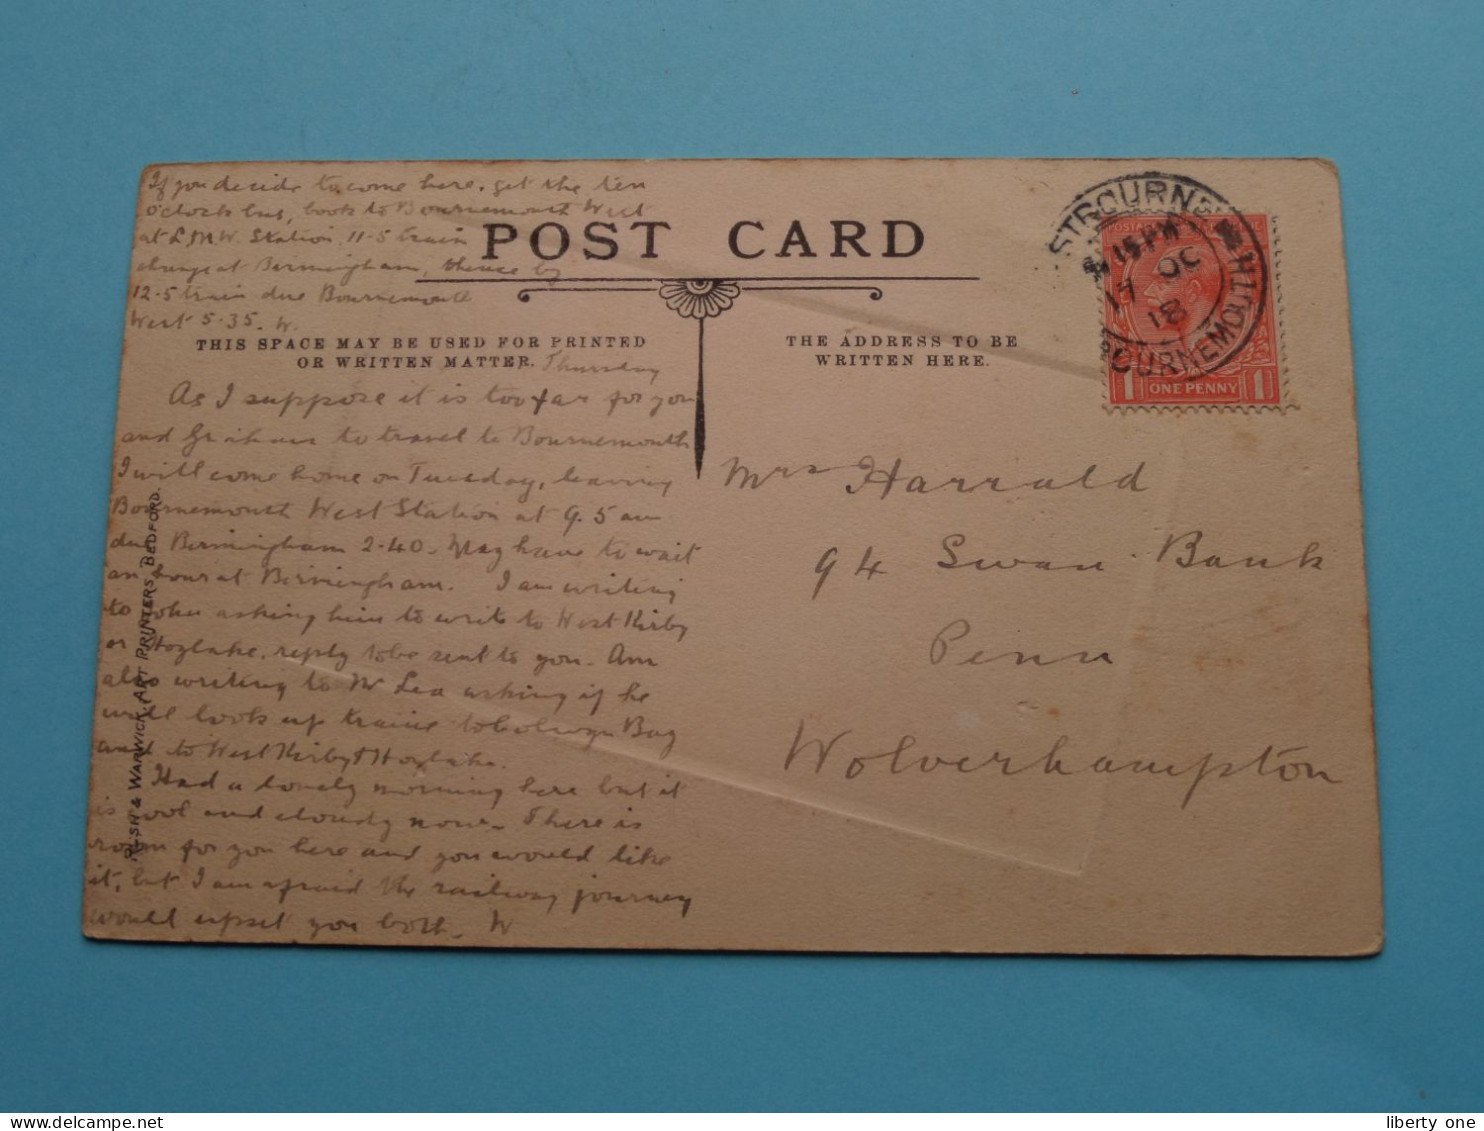 If you decide to come here. get the ten
o'clock bus, book to Bournemouth West
at L.N.W. Station, 11-5 train
change at Birmingham, thence by
12-5 train due Bournemouth
West 5.35. W.
POST CARD
THIS SPACE MAY BE USED FOR PRINTED
OR WRITTEN MATTER.
Thursday
As I suppose it is too far for you
and Graham to travel to Bournemouth
I will come home on Tuesday, leaving
Bournemouth West Station at 9.5 am
due Birmingham 2-40. May have to wait
an hour at Birmingham. I am writing
to John asking him to write to West Kirby
or Hoylake, reply to be sent to you. Am
also writing to Mr Lea asking if he
will look up trains to Colwyn Bay
and to West Kirby & Hoylake.
Had a lovely morning here but it
is cool and cloudy now. There is
room for you here and you would like
it, but I am afraid the railway journey
would upset you both. W
RUSH & WARWICK, ART PRINTERS, BEDFORD.
THE ADDRESS TO BE
WRITTEN HERE.
BOURNEMOUTH
12 15 PM
17 OC
18
ONE PENNY
1 1
Mrs Harrald
94 Swan Bank
Penn
Wolverhampton
liberty one